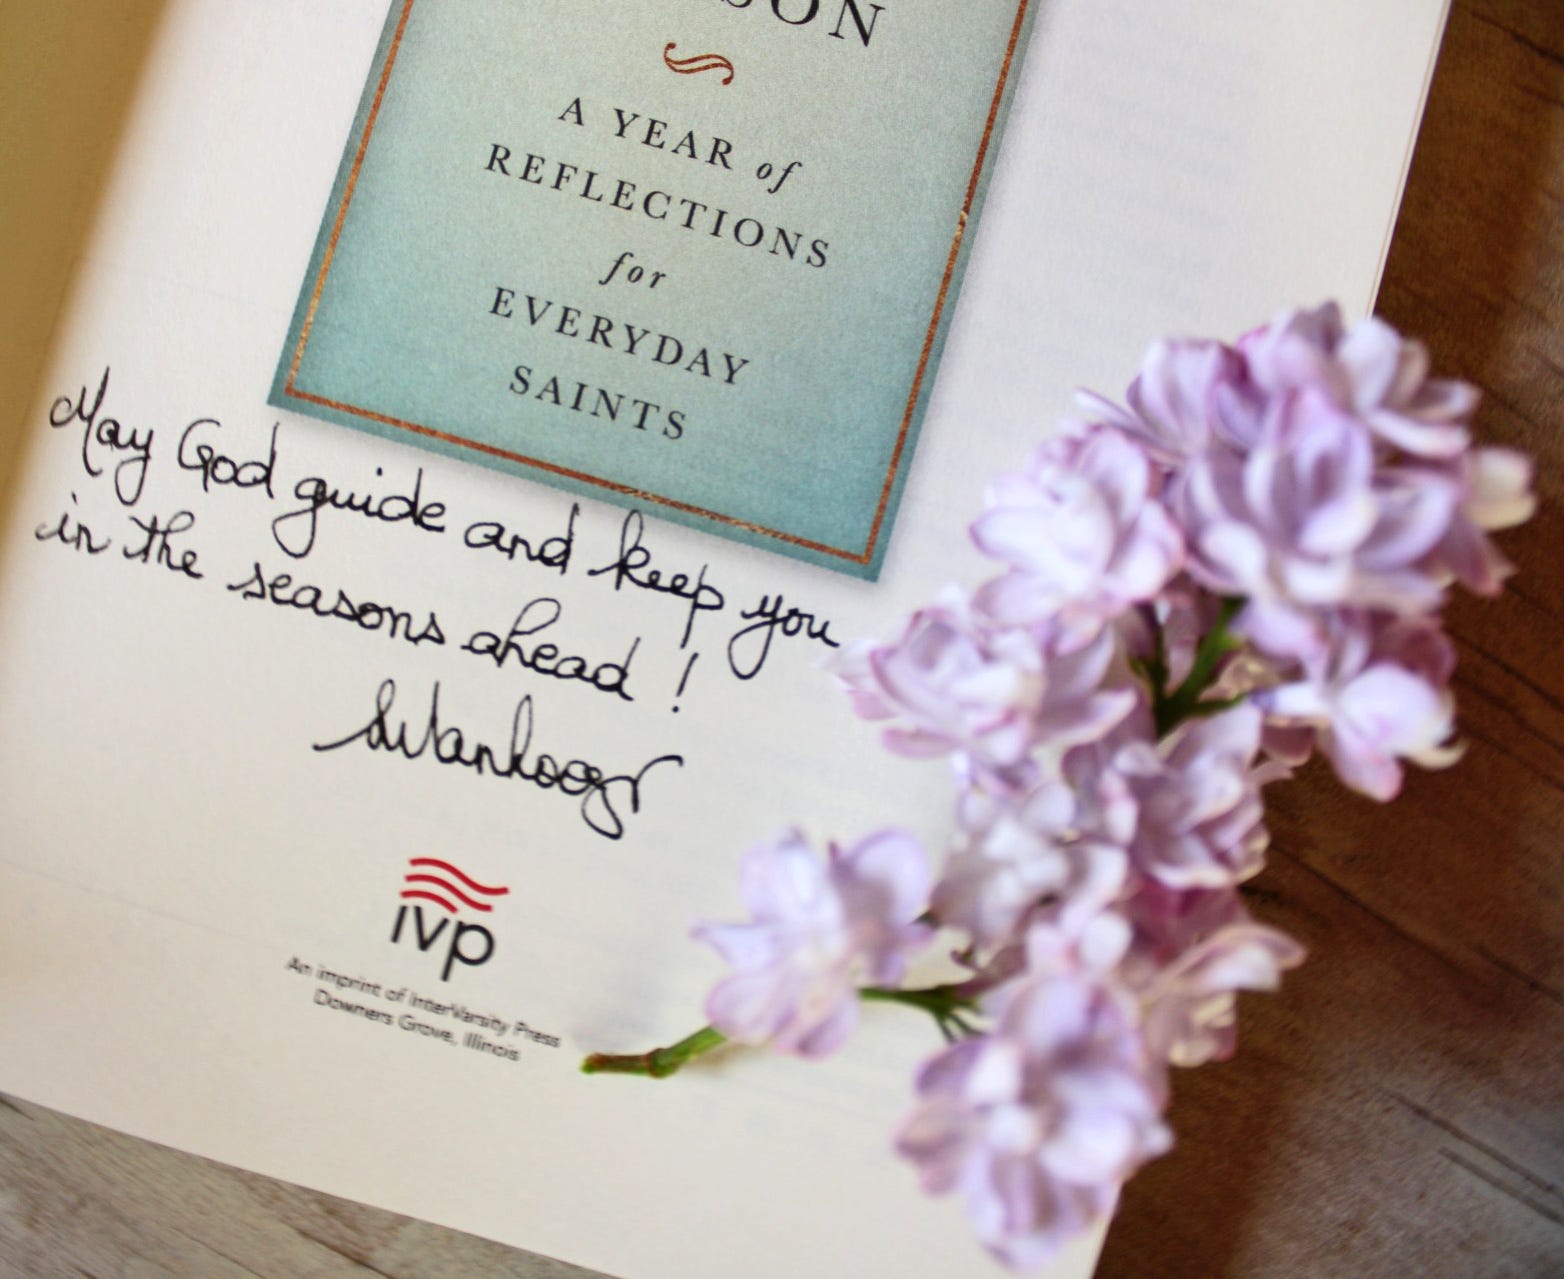 SON
A YEAR of
REFLECTIONS
for
EVERYDAY
SAINTS
May God guide and keep you
in the seasons ahead!
ivp
An imprint of InterVarsity Press
Downers Grove, Illinois